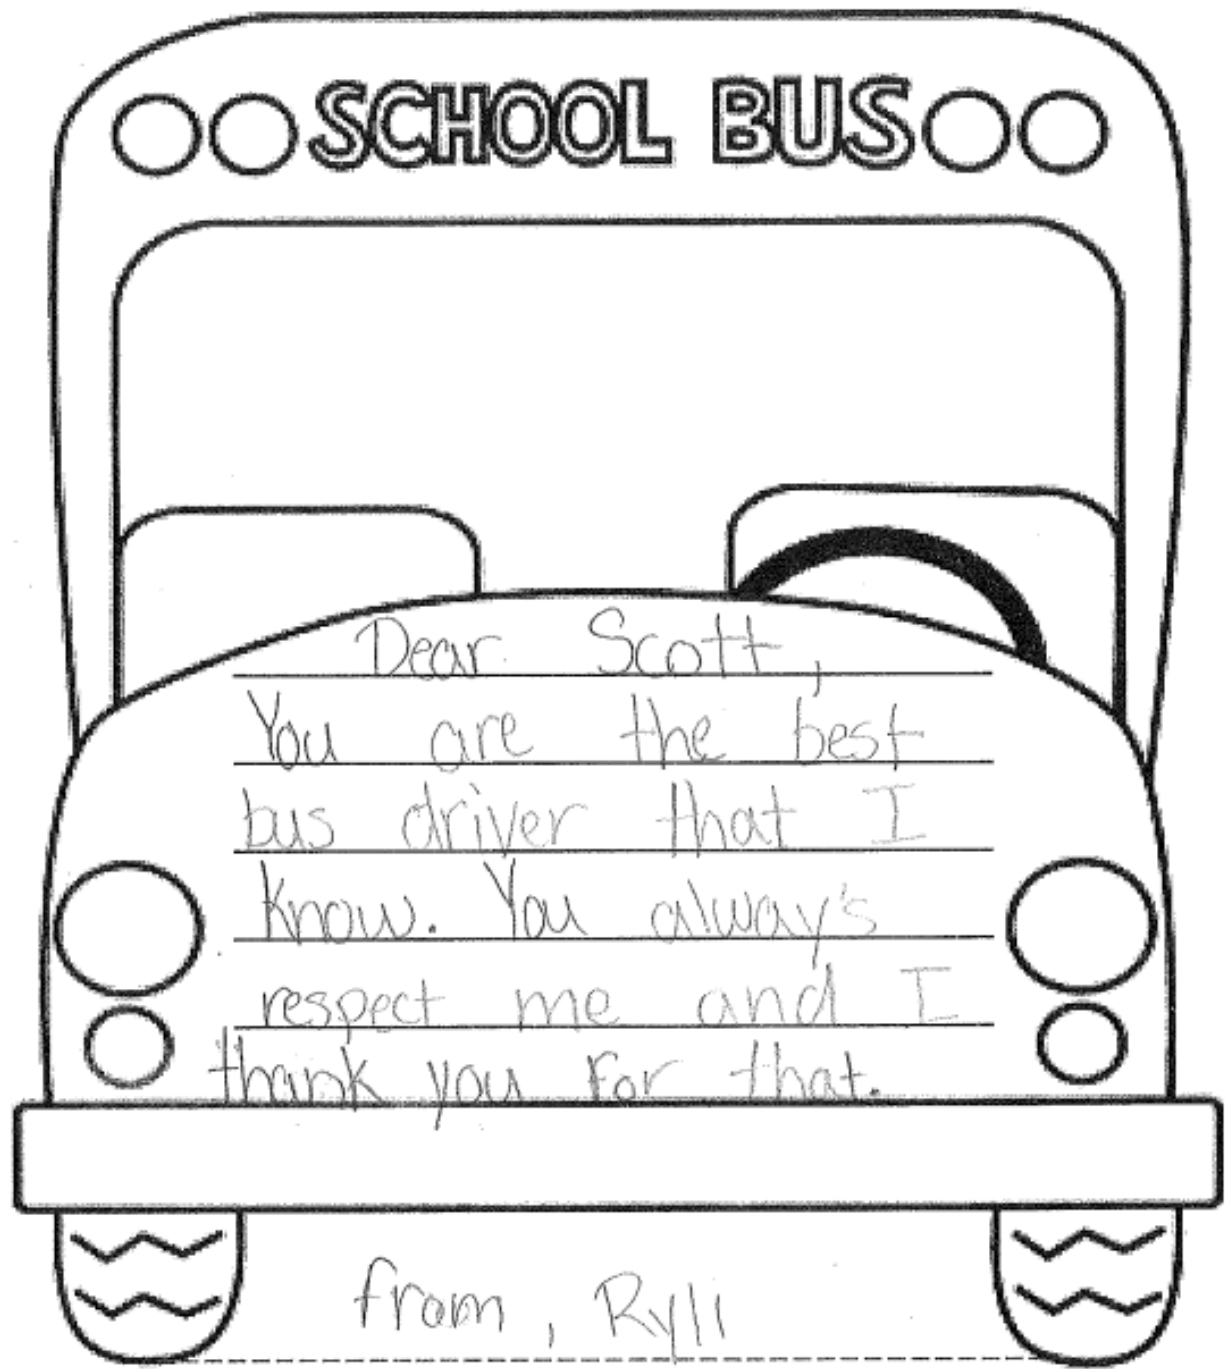 SCHOOL BUS
Dear Scott,
You are the best
bus driver that I
know. You always
respect me and I
thank you for that.
from, Ryli